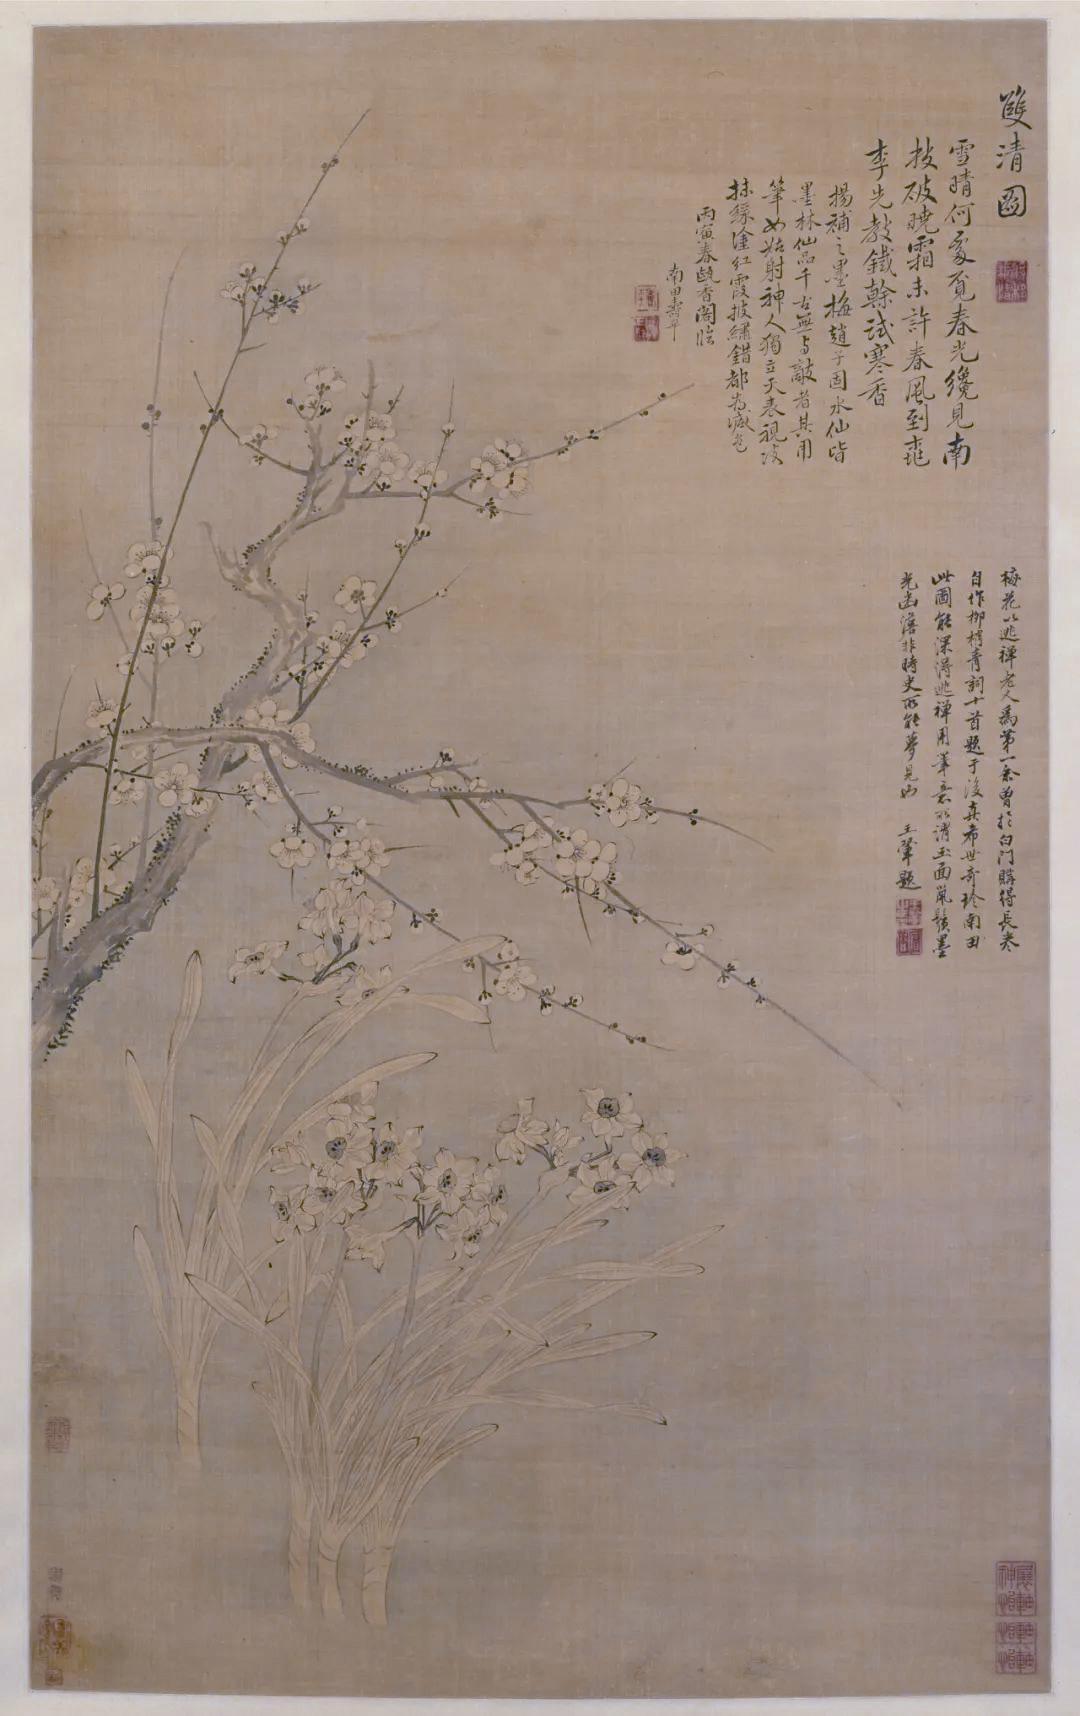 雙清圖
雪晴何處覓春光纔見南
枝破曉霜未許春風到桃
李先教鐵榦試寒香
揚補之墨梅趙子固水仙皆
墨林仙品千古無與敵者其用
筆如姑射神人獨立天表視世
抹綠塗紅霞披繡錯都為減色
丙寅春甌香閣臨
南田壽平
梅花以逃禪老人為第一余曾於白門購得長卷
自作柳梢青詞十首題于後真希世奇珍南田
此圖能深得逃禪用筆意所謂玉面鼠鬚墨
光幽澹非時史所能夢見也
王翬題